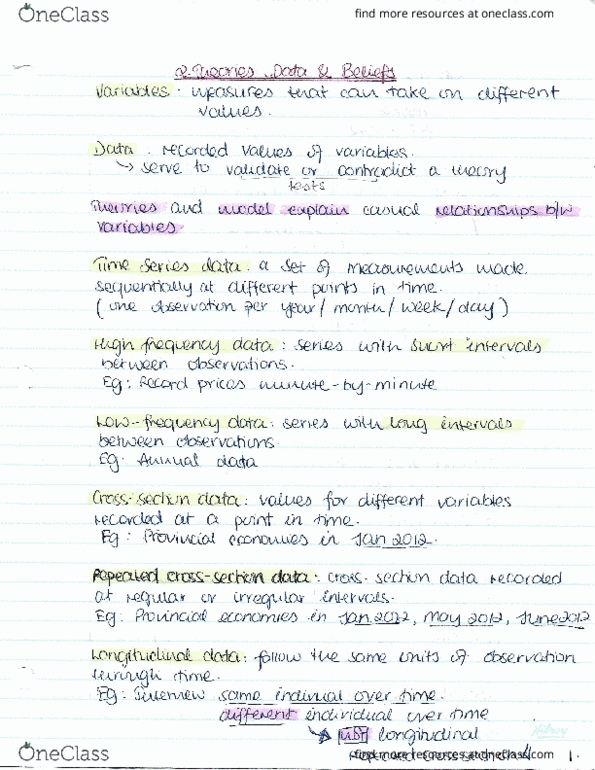 OneClass
find more resources at oneclass.com
2. Theories, Data & Beliefs
Variables: measures that can take on different
values.
Data: recorded values of variables.
↳ serve to validate or contradict a theory
tests
Theories and model explain casual relationships b/w
variables
Time series data: a set of measurements made
sequentially at different points in time.
(one observation per year/month/week/day)
High frequency data: series with short intervals
between observations.
Eg: Record prices minute-by-minute
Low-frequency data: series with long intervals
between observations
Eg. Annual data
Cross-section data: values for different variables
recorded at a point in time.
Eg: Provincial economies in Jan 2012.
Repeated cross-section data: cross-section data recorded
at regular or irregular intervals.
Eg: Provincial economies in Jan 2012, May 2012, June 2012
Longitudinal data: follow the same units of observation
through time.
Eg: Interview same indivual over time.
different individual over time
↳ not longitudinal
repeated cross-section
OneClass
find more resources at oneclass.com
1.